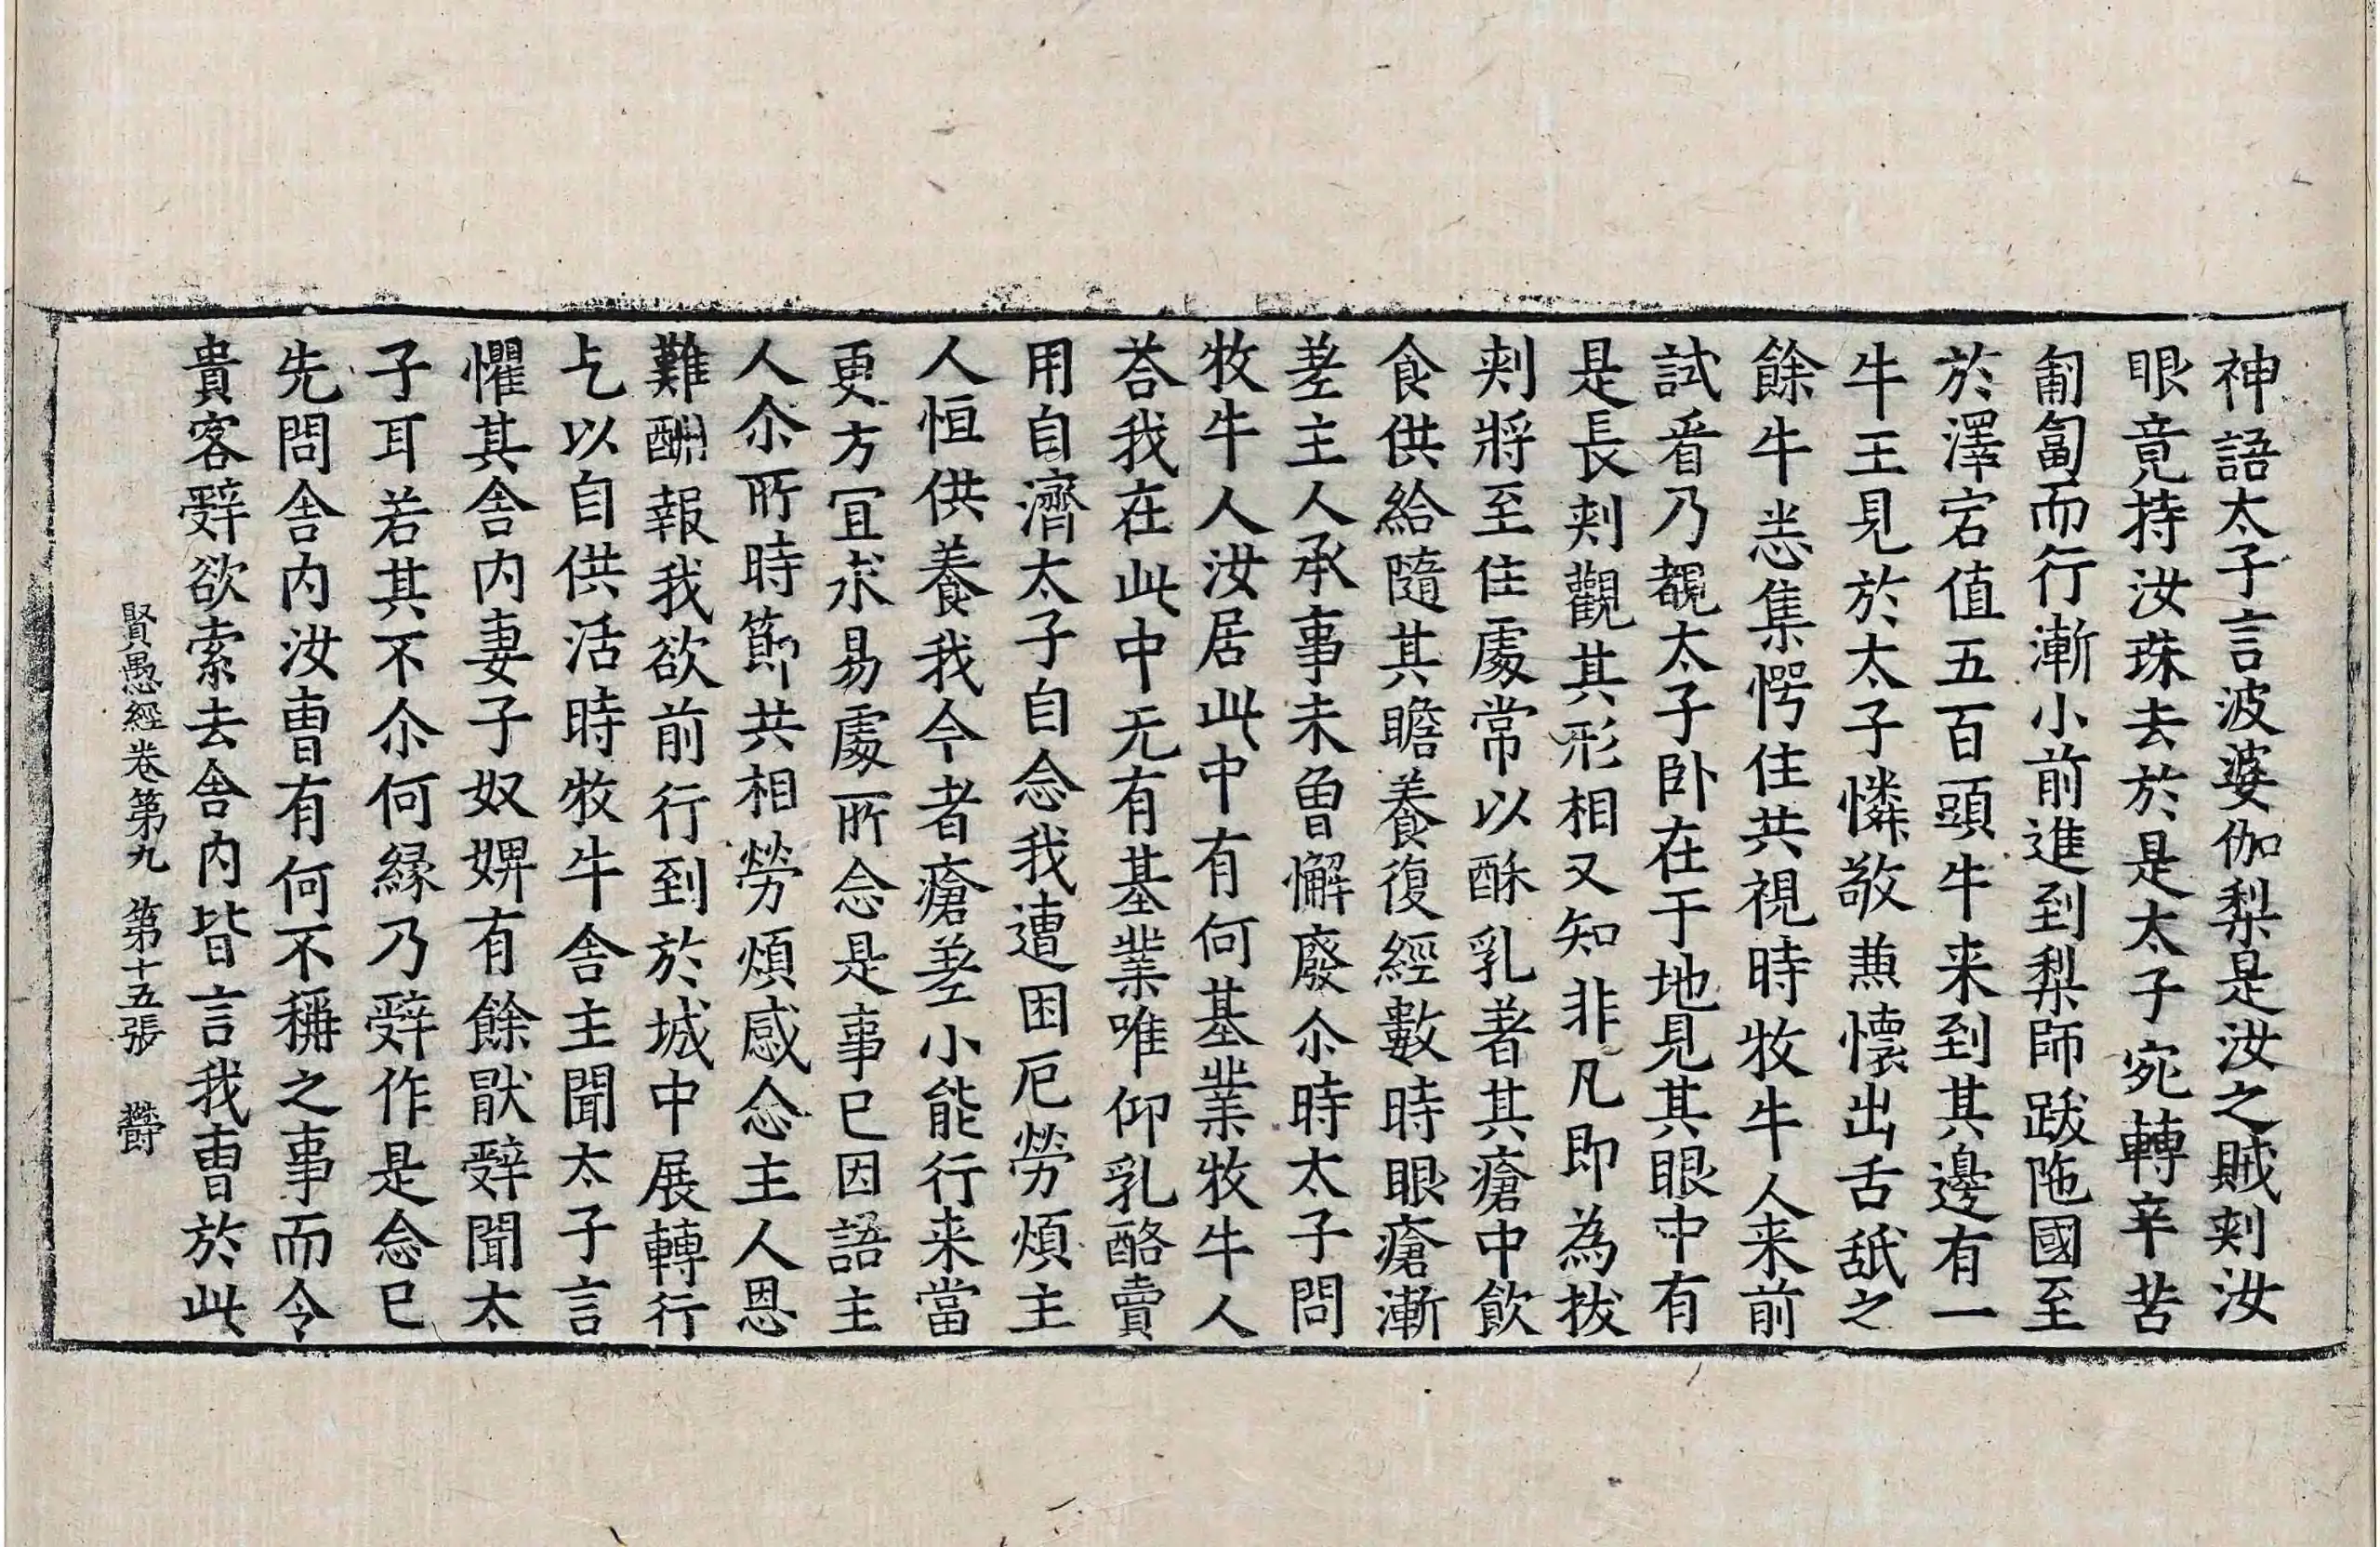 神語太子言波婆伽梨是汝之賊刾汝
眼竟持汝珠去於是太子宛轉辛苦
匍匐而行漸小前進到梨師跋陁國至
於澤宕值五百頭牛来到其邊有一
牛王見於太子憐敬𠔥懷出舌舐之
餘牛悉集愕住共視時牧牛人来前
試㸔乃覩太子卧在于地見其眼中有
是長刾觀其形相又知非凡即為拔
刾將至住處常以酥乳著其瘡中飲
食供給隨其瞻養復經數時眼瘡漸
差主人承事未曾懈廢尒時太子問
牧牛人汝居此中有何基業牧牛人
荅我在此中无有基業唯仰乳酪賣
用自濟太子自念我遭困厄勞煩主
人恒供養我今者瘡差小能行来當
更方冝求易處所念是事已因語主
人尒所時節共相勞煩感念主人恩
難酬報我欲前行到於城中展轉行
乞以自供活時牧牛舍主聞太子言
懼其舍內妻子奴婢有餘猒辝聞太
子耳若其不尒何緣乃辝作是念已
先問舍內汝曹有何不稱之事而令
貴客辝欲索去舍內皆言我曹於此
賢愚經卷第九 第十五張 欝